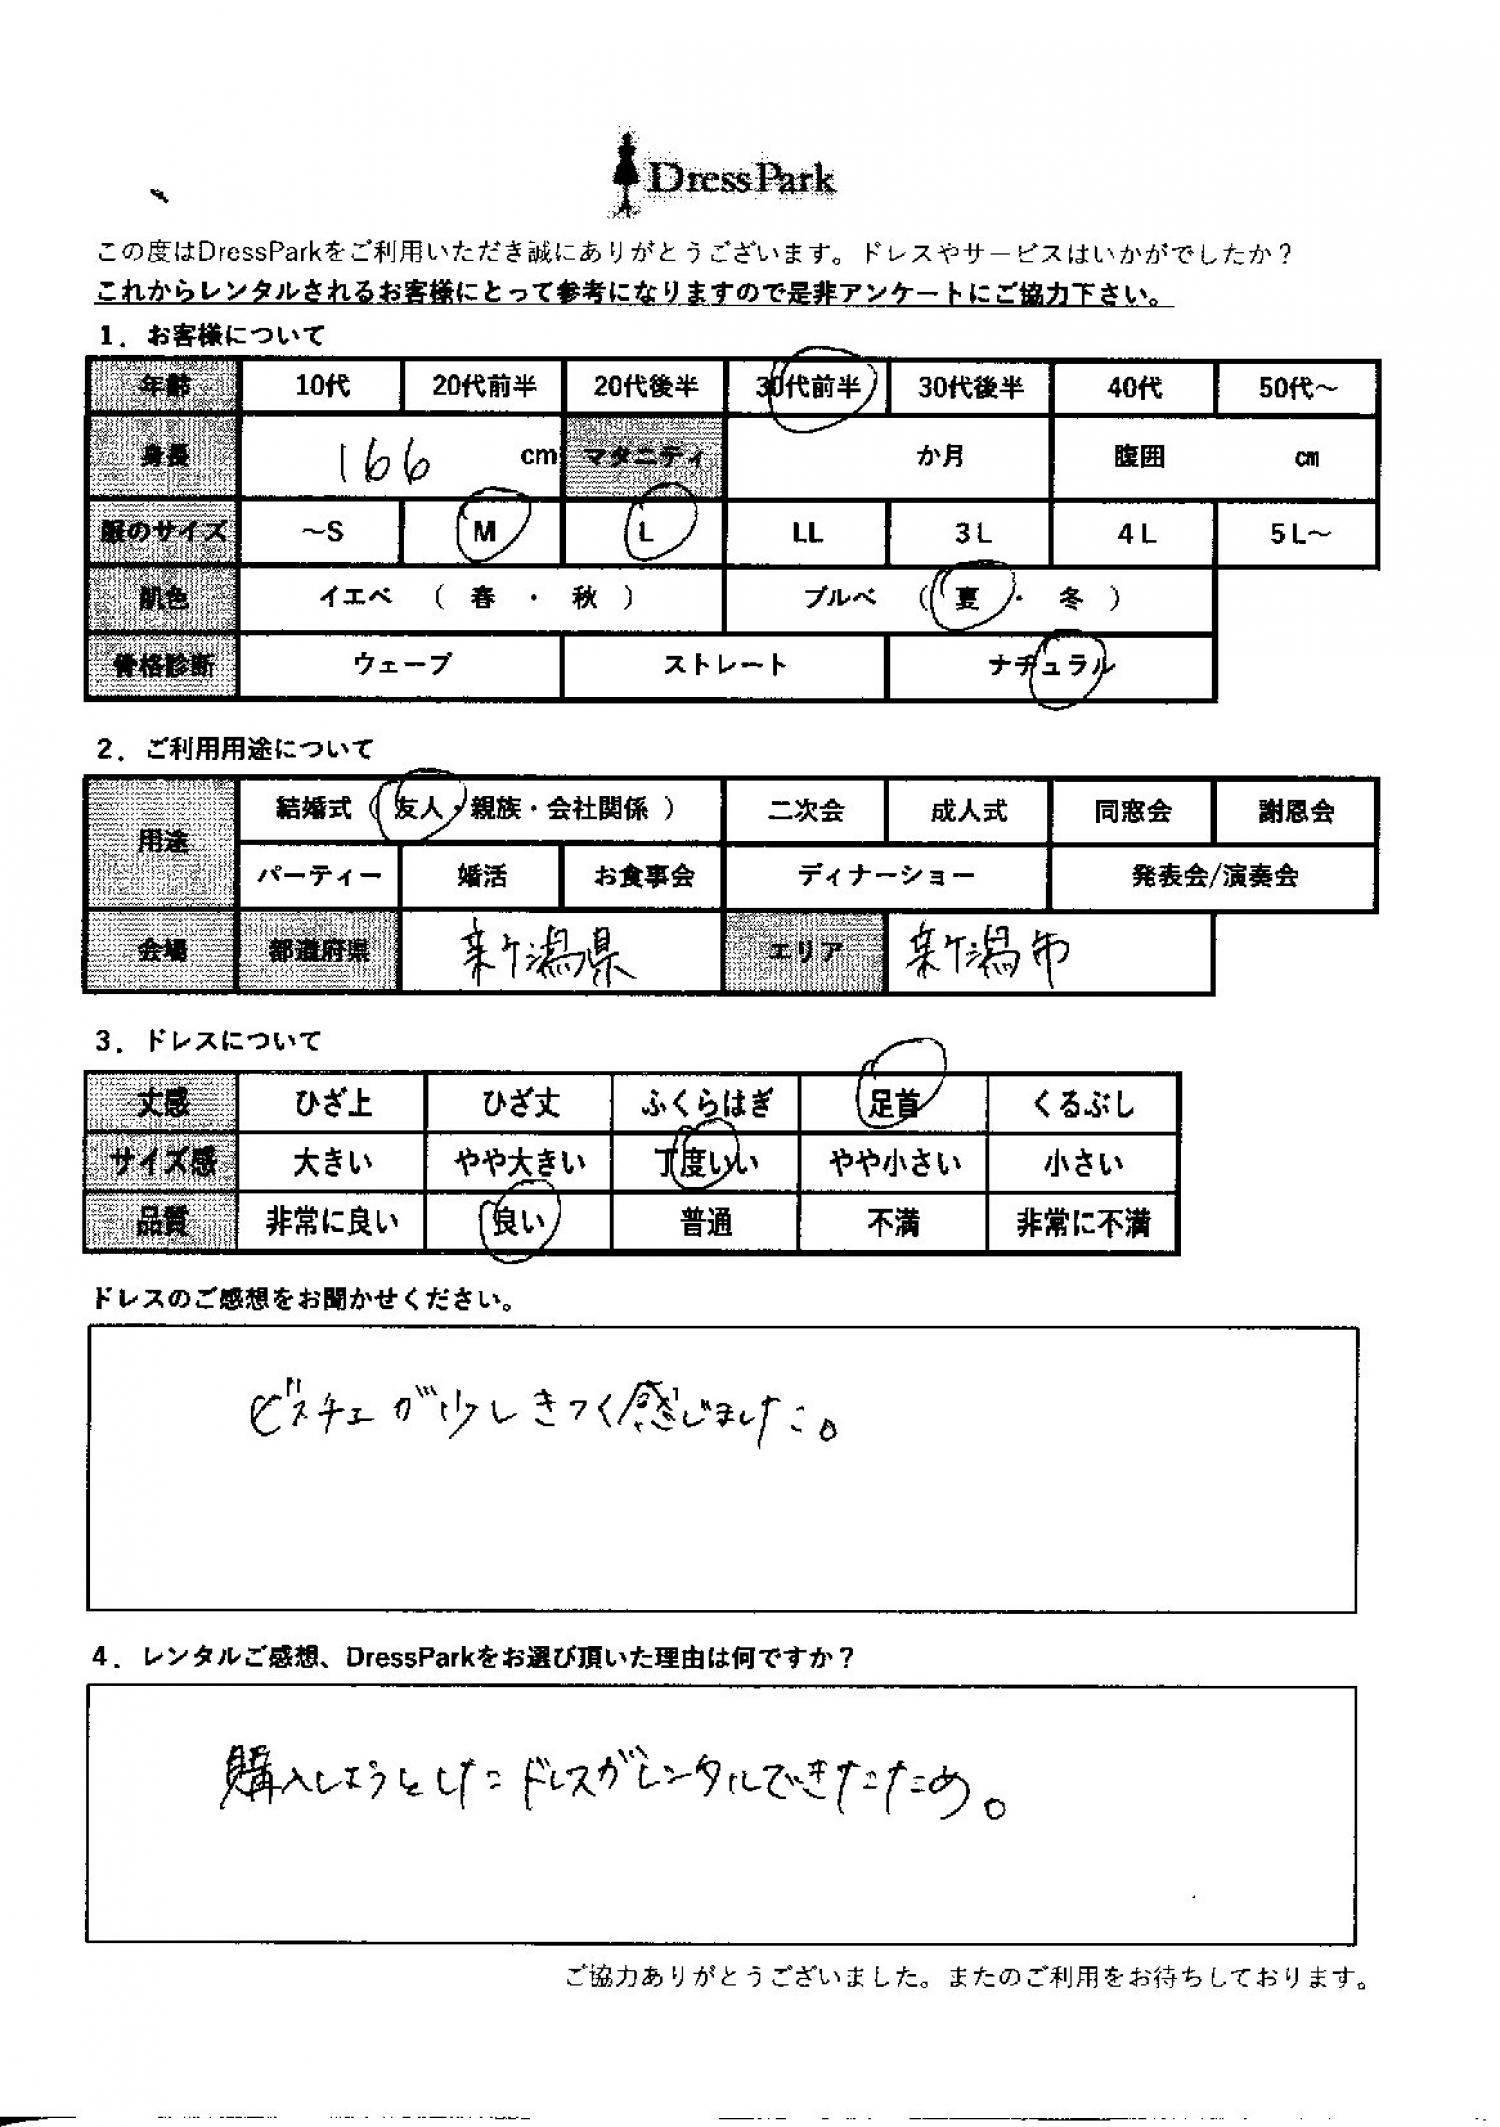 DressPark
この度はDressParkをご利用いただき誠にありがとうございます。ドレスやサービスはいかがでしたか？
これからレンタルされるお客様にとって参考になりますので是非アンケートにご協力下さい。
1．お客様について
年齢 10代 20代前半 20代後半 30代前半 30代後半 40代 50代～
身長 166 cm マタニティ か月 腹囲 cm
服のサイズ ～S M L LL 3L 4L 5L～
肌色 イエベ （ 春 ・ 秋 ） ブルベ （ 夏 ・ 冬 ）
骨格診断 ウェーブ ストレート ナチュラル
2．ご利用用途について
用途 結婚式（ 友人・親族・会社関係 ） 二次会 成人式 同窓会 謝恩会
パーティー 婚活 お食事会 ディナーショー 発表会/演奏会
会場 都道府県 新潟県 エリア 新潟市
3．ドレスについて
丈感 ひざ上 ひざ丈 ふくらはぎ 足首 くるぶし
サイズ感 大きい やや大きい 丁度いい やや小さい 小さい
品質 非常に良い 良い 普通 不満 非常に不満
ドレスのご感想をお聞かせください。
ビスチェが少しきつく感じました。
4．レンタルご感想、DressParkをお選び頂いた理由は何ですか？
購入しようとしたドレスがレンタルできたため。
ご協力ありがとうございました。またのご利用をお待ちしております。